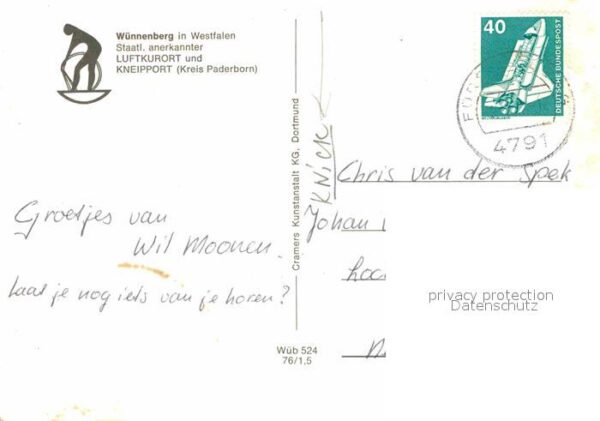 Wünnenberg in Westfalen
Staatl. anerkannter
LUFTKURORT und
KNEIPPORT (Kreis Paderborn)
Groetjes van
Wil Moonen.
Laat je nog iets van je horen?
Cramers Kunstanstalt KG, Dortmund
Wüb 524
76/1,5
KNICK
40
DEUTSCHE BUNDESPOST
4791
Chris van der Spek
Johan
privacy protection
Datenschutz